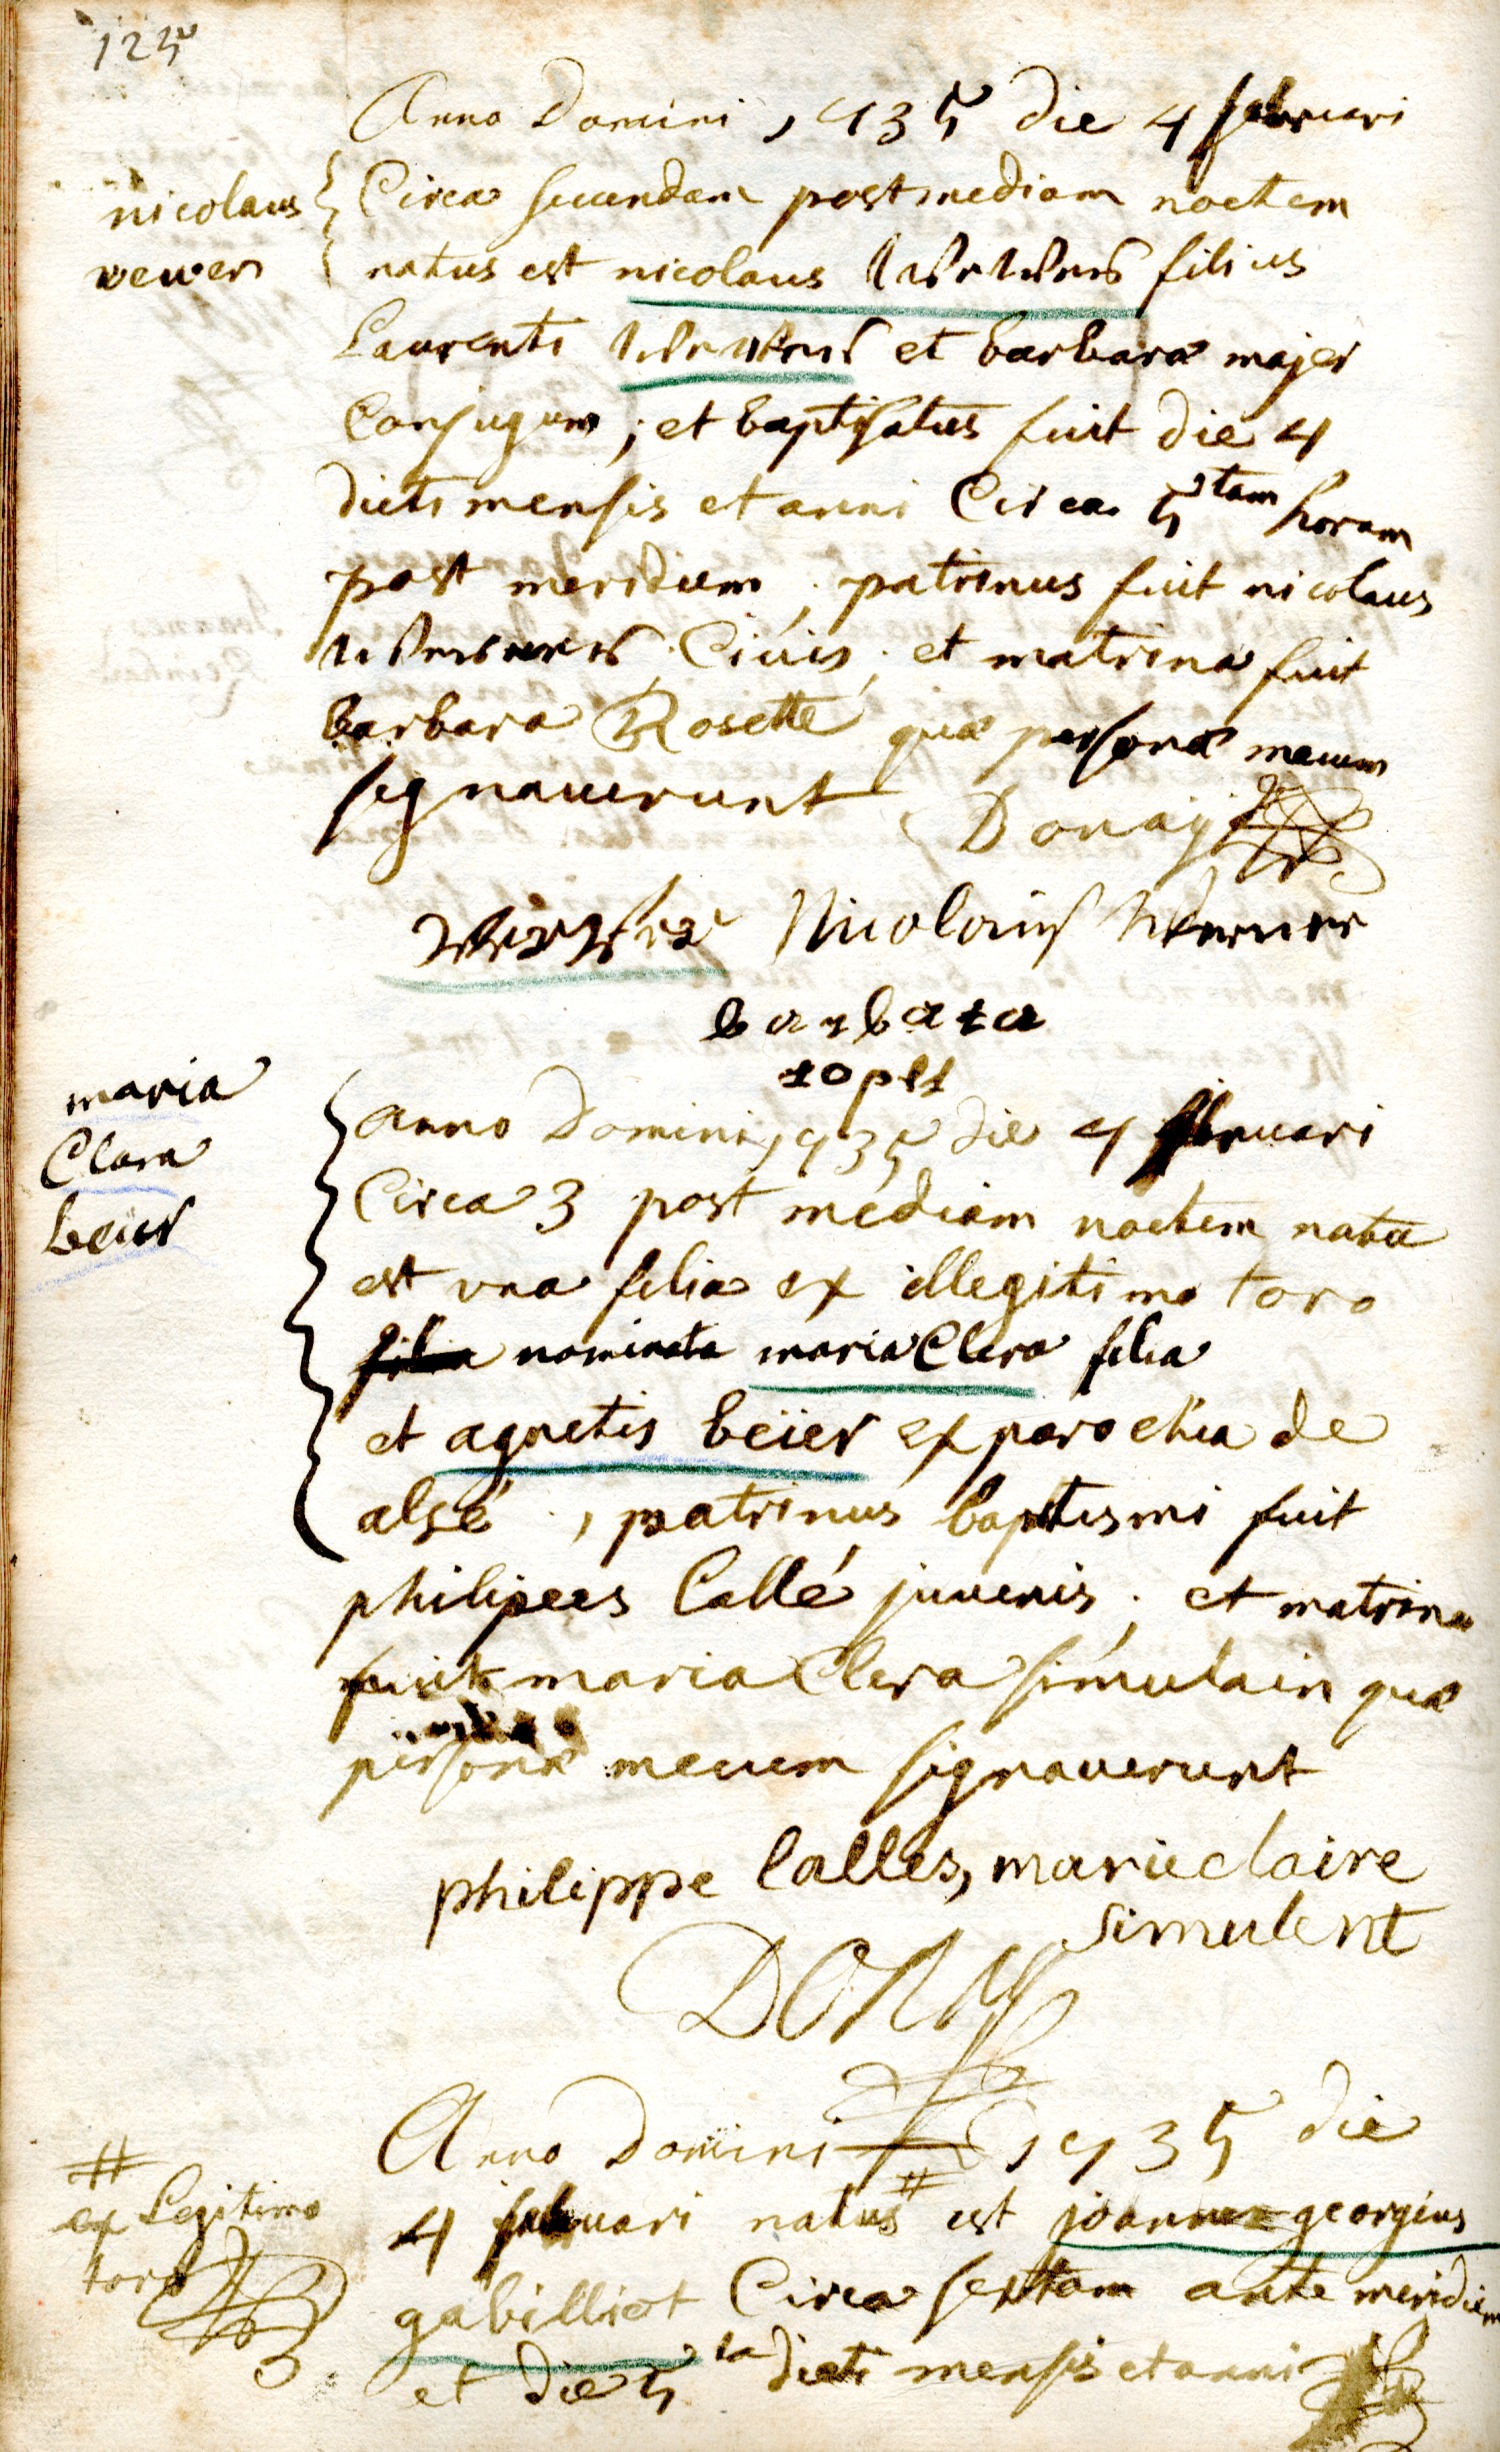 125
Anno Domini 1735 die 4 februari
nicolaus
wewer
Circa secundam post mediam noctem
natus est nicolaus Wewer filius
Laurenti Wewer et barbara majer
Conjugum ; et baptisatus fuit die 4
dicti mensis et anni Circa 5tam horam
post meridiem ; patrinus fuit nicolaus
Civis ; et matrina fuit
barbara Rosette quæ personæ mecum
signauerunt Donaÿ
Nicolaus Werner
barbara
ropert
maria
Clara
beier
anno Domini 1735 die 4 februari
Circa 3 post mediam noctem nata
est vna filia ex illegitimo toro
filia nominata maria Clara filia
et agnetis beier ex parochia de
alsé , patrinus baptismi fuit
philipees Callé juuenis ; et matrina
fuit maria Clera simulain quæ
personæ mecum signauerunt
philippe Calles, marie claire
simulent
DONAY
Anno Domini 1735 die
# ex Legitimo
toro
4 februari natus # est joannes georgius
gabilliot Circa sextam ante meridiem
et die 5ta dicti mensis et anni